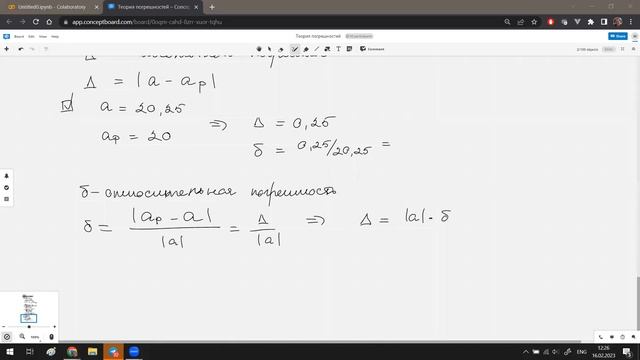 Untitled0.ipynb - Colaboratory
Теория погрешностей – Conce
app.conceptboard.com/board/0oqm-cahd-8zrr-xuor-tqhu
Boards
Edit
View
Help
Теория погрешностей
Share
Comment
Δ = |a - aₚ|
a = 20,25
aₚ = 20
=> Δ = 0,25
δ = 0,25/20,25 =
δ - относительная погрешность
δ = |aₚ - a| / |a| = Δ / |a| => Δ = |a| · δ
100%
ENG
12:26
16.02.2023